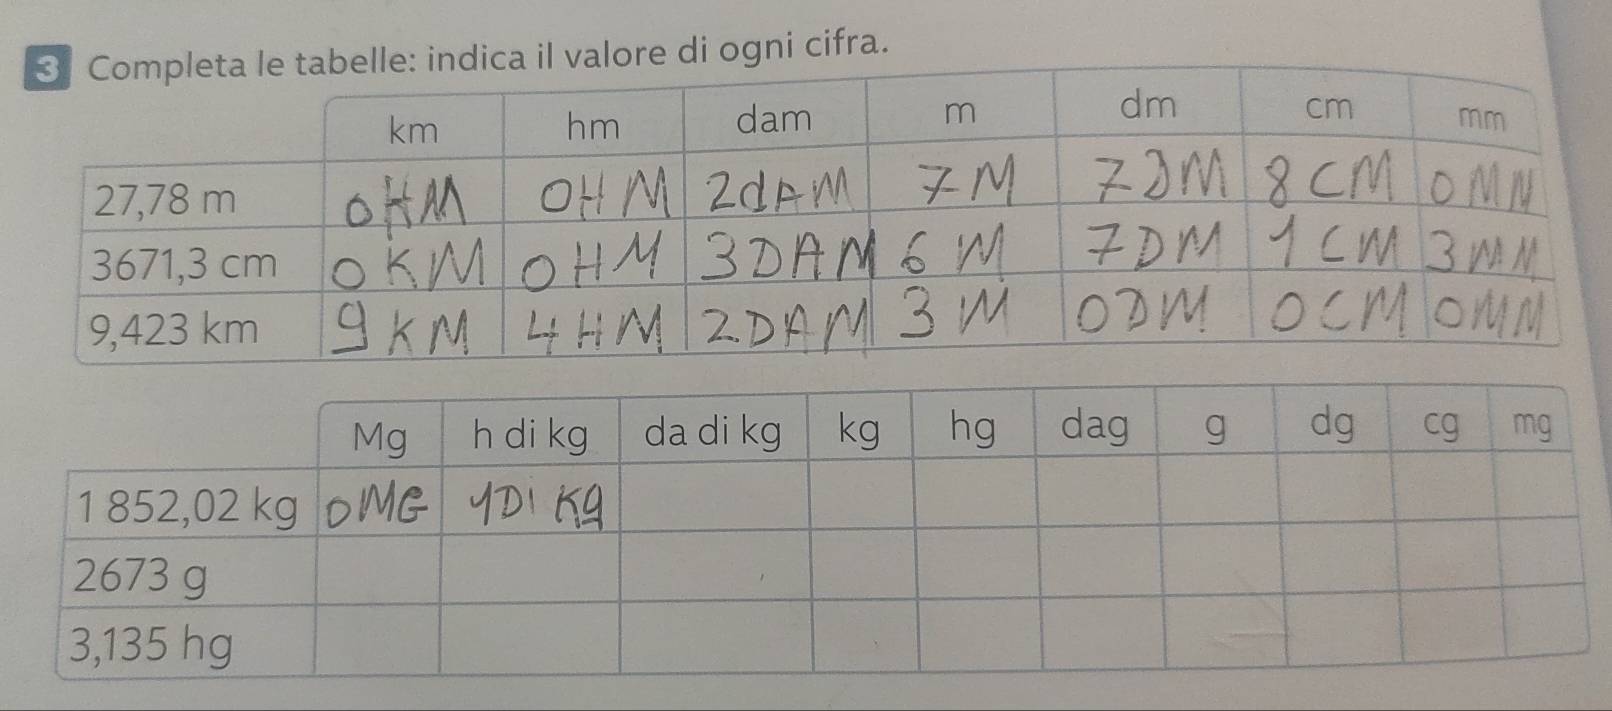 3 Completa le tabelle: indica il valore di ogni cifra.
km hm dam m dm cm mm
27,78 m 0HM 0HM 2dAM 7M 7DM 8CM 0MM
3671,3 cm 0KM 0HM 3DAM 6M 7DM 1CM 3MM
9,423 km 9KM 4HM 2DAM 3M 0DM 0CM 0MM
Mg h di kg da di kg kg hg dag g dg cg mg
1 852,02 kg 0MG 1DI Kg
2673 g
3,135 hg